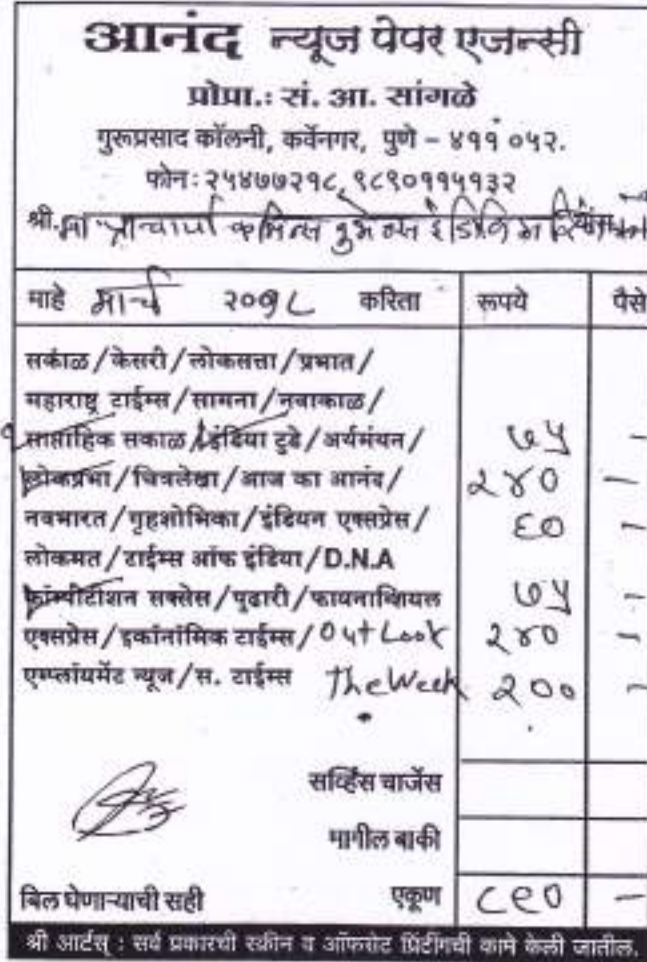 आनंद न्यूज पेपर एजन्सी
प्रोप्रा.: सं. आ. सांगळे
गुरूप्रसाद कॉलनी, कर्वेनगर, पुणे – ४११ ०५२.
फोन: २५४७७२१८, ९८९०११५१३२
श्री. मा. प्राचार्या कमिन्स
माहे मार्च २०१८ करिता रूपये पैसे
सकाळ/केसरी/लोकसत्ता/प्रभात/
महाराष्ट्र टाईम्स/सामना/नवाकाळ/
साप्ताहिक सकाळ/इंडिया टुडे/अर्थमंथन/ ७५ –
लोकप्रभा/चित्रलेखा/आज का आनंद/ २४० –
नवभारत/गृहशोभिका/इंडियन एक्सप्रेस/ ६० –
लोकमत/टाईम्स ऑफ इंडिया/D.N.A
कॉम्पीटीशन सक्सेस/पुढारी/फायनान्शियल ७५ –
एक्सप्रेस/इकॉनॉमिक टाईम्स/Out Look २४० –
एम्प्लॉयमेंट न्यूज/स. टाईम्स The Week २०० –
सर्व्हिस चार्जेस
मागील बाकी
बिल घेणाऱ्याची सही एकूण ८९० –
श्री आर्टस् : सर्व प्रकारची स्क्रीन व ऑफसेट प्रिंटींगची कामे केली जातील.